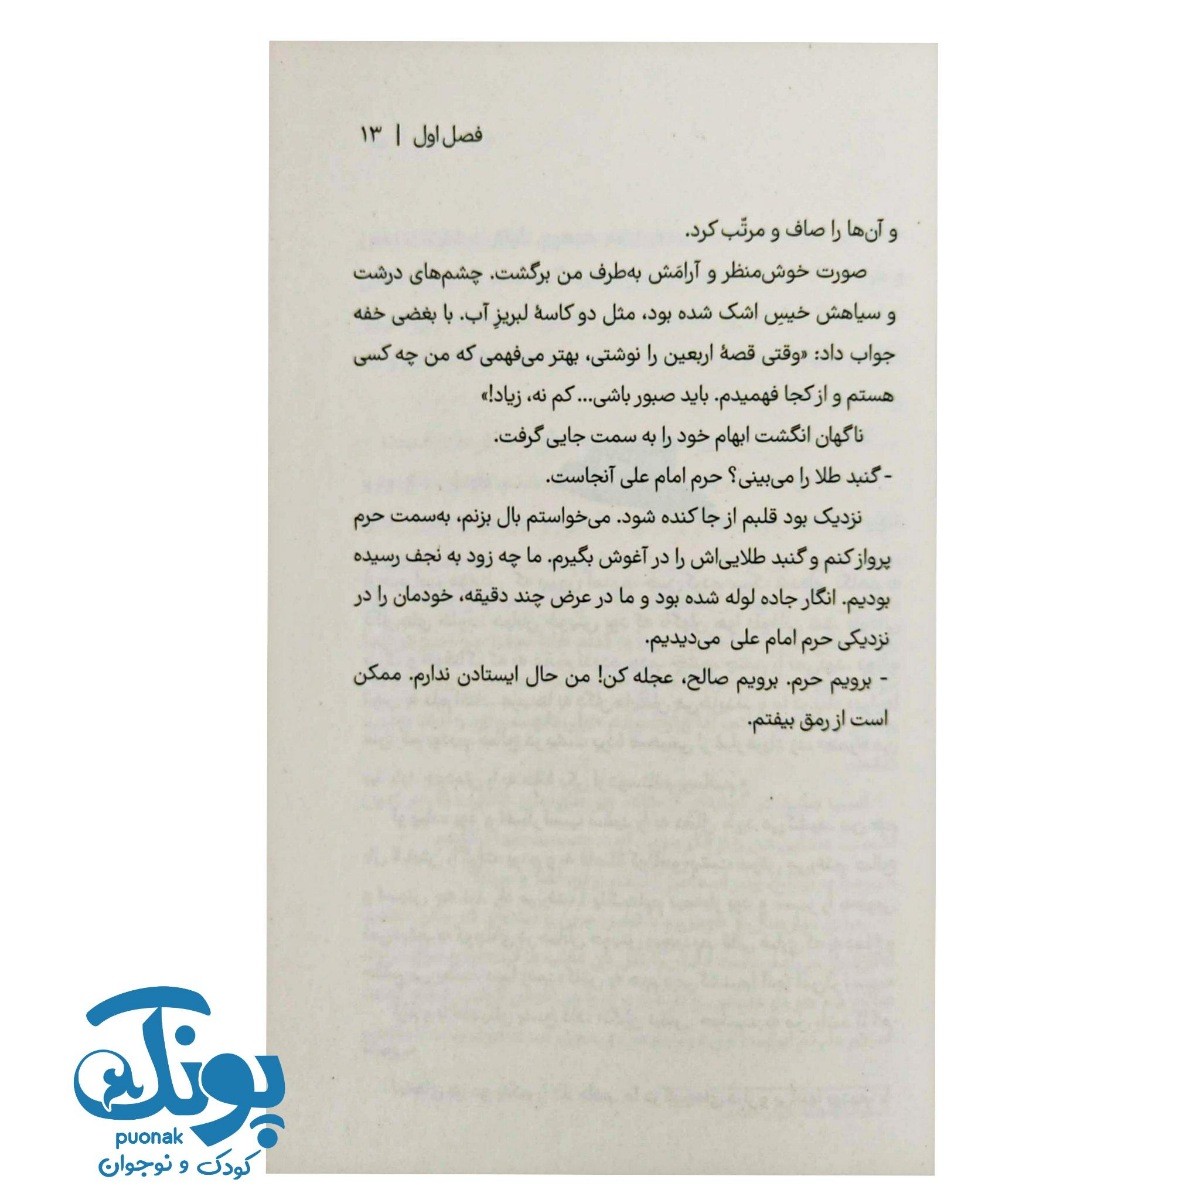 فصل اول | ۱۳
و آن‌ها را صاف و مرتّب کرد.
صورت خوش‌منظر و آرامَش به‌طرف من برگشت. چشم‌های درشت
و سیاهش خیسِ اشک شده بود، مثل دو کاسهٔ لبریزِ آب. با بغضی خفه
جواب داد: «وقتی قصهٔ اربعین را نوشتی، بهتر می‌فهمی که من چه کسی
هستم و از کجا فهمیدم. باید صبور باشی... کم نه، زیاد!»
ناگهان انگشت ابهام خود را به سمت جایی گرفت.
- گنبد طلا را می‌بینی؟ حرم امام علی آنجاست.
نزدیک بود قلبم از جا کنده شود. می‌خواستم بال بزنم، به‌سمت حرم
پرواز کنم و گنبد طلایی‌اش را در آغوش بگیرم. ما چه زود به نجف رسیده
بودیم. انگار جاده لوله شده بود و ما در عرض چند دقیقه، خودمان را در
نزدیکی حرم امام علی می‌دیدیم.
- برویم حرم. برویم صالح، عجله کن! من حال ایستادن ندارم. ممکن
است از رمق بیفتم.
پونک
puonak
کودک و نوجوان